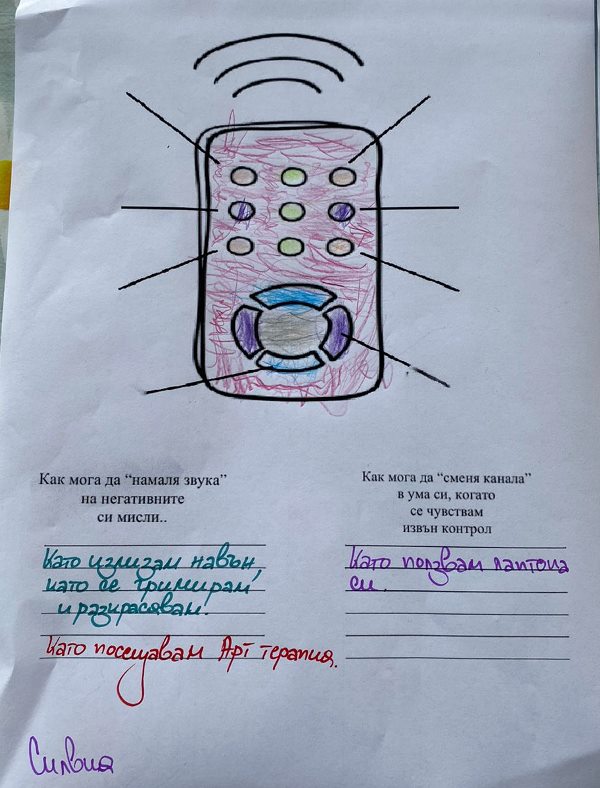 Как мога да “намаля звука”
на негативните
си мисли..
Като излизам навън,
като се гримирам
и разкрасявам.
Като посещавам Арт терапия.
Как мога да “сменя канала”
в ума си, когато
се чувствам
извън контрол
Като ползвам лаптопа
си.
Силвия